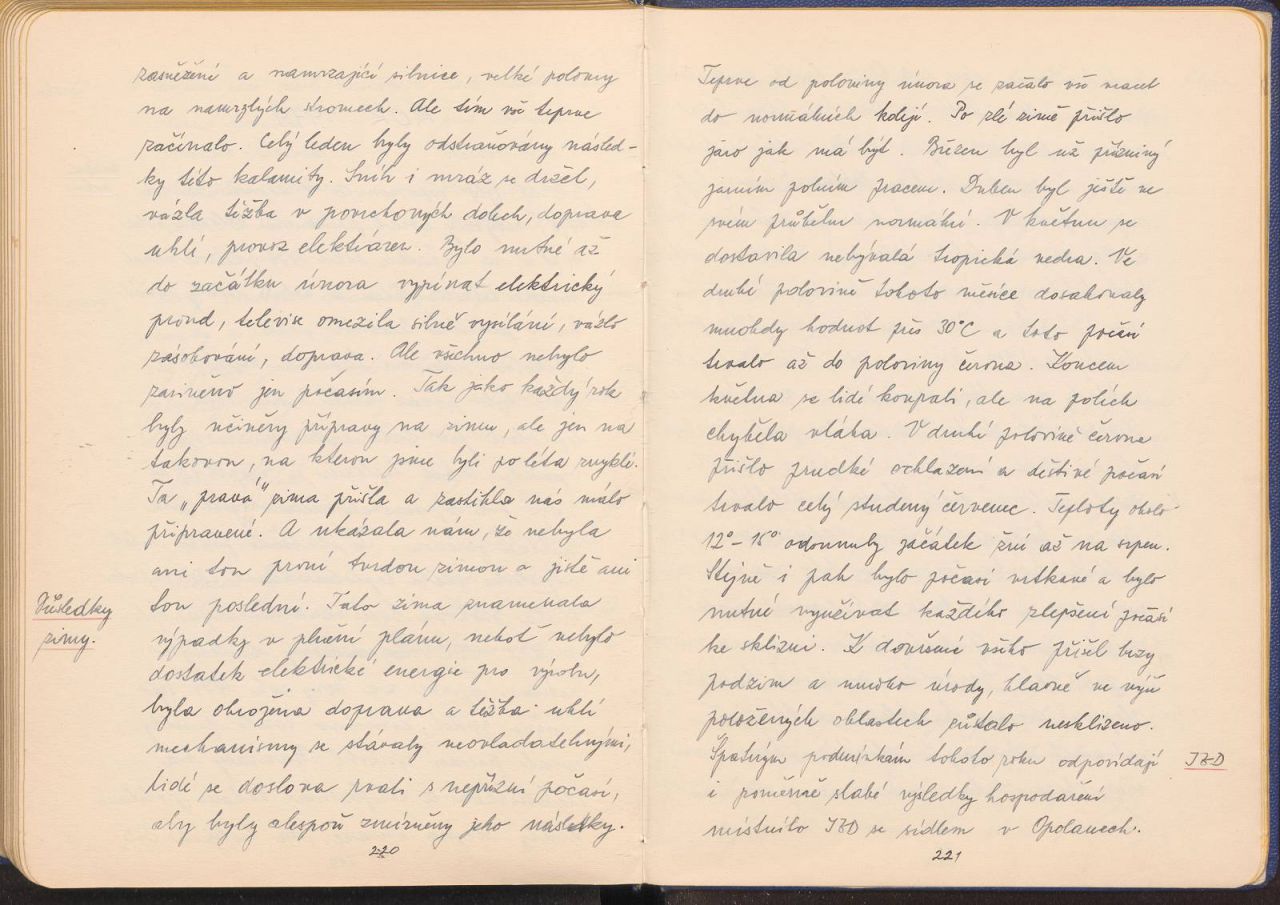 zasněžené a namrzající silnice, velké polomy
na namrzlých stromech. Ale tím vše teprve
začínalo. Celý leden byly odstraňovány násled-
ky této kalamity. Sníh i mráz se držel,
vázla těžba v povrchových dolech, doprava
uhlí, provoz elektráren. Bylo nutné až
do začátku února vypínat elektrický
proud, televise omezila silně vysílání, vázlo
zásobování, doprava. Ale všechno nebylo
zaviněno jen počasím. Tak jako každý rok
byly učiněny přípravy na zimu, ale jen na
takovou, na kterou jsme byli po léta zvyklí.
Ta „pravá" zima přišla a zastihla nás málo
připravené. A ukázala nám, že nebyla
ani tou první tvrdou zimou a jistě ani
tou poslední. Tato zima znamenala
Důsledky
zimy.
výpadky v plnění plánu, neboť nebylo
dostatek elektrické energie pro výrobu,
byla ohrožena doprava a těžba uhlí
mechanismy se stávaly neovladatelnými,
lidé se doslova rvali s nepřízní počasí,
aby byly alespoň zmírněny jeho následky.
220
Teprve od poloviny února se začalo vše vracet
do normálních kolejí. Po zlé zimě přišlo
jaro jak má být. Březen byl už příznivý
jarním polním pracem. Duben byl ještě ve
svém průběhu normální. V květnu se
dostavila nebývalá tropická vedra. Ve
druhé polovině tohoto měsíce dosahovaly
mnohdy hodnot přes 30°C a toto počasí
trvalo až do poloviny června. Koncem
května se lidé koupali, ale na polích
chyběla vláha. V druhé polovině června
přišlo prudké ochlazení a deštivé počasí
trvalo celý studený červenec. Teploty okolo
12°-15° odsunuly začátek žní až na srpen.
Stejně i pak bylo počasí vrtkavé a bylo
nutné využívat každého zlepšení počasí
ke sklizni. K dovršení všeho přišel brzy
podzim a mnoho úrody, hlavně ve výše
položených oblastech zůstalo nesklizeno.
Špatným podmínkám tohoto roku odpovídají
JZD
i poměrně slabé výsledky hospodaření
místního JZD se sídlem v Opolanech.
221